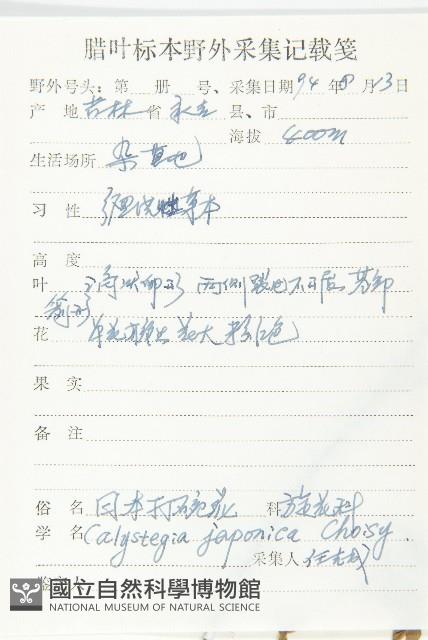 腊叶标本野外采集记载笺
野外号头: 第 册 号、采集日期 94 年 8 月 13 日
产 地 吉林 省 永吉 县、市
海拔 400m
生活场所 杂草地
习 性 缠绕性草本
高 度
叶 卵形 两侧
花 单花腋生 花大 粉红色
果 实
备 注
俗 名 日本打碗花 科 旋花科
学 名 Calystegia japonica Choisy.
采集人 任
國立自然科學博物館
NATIONAL MUSEUM OF NATURAL SCIENCE